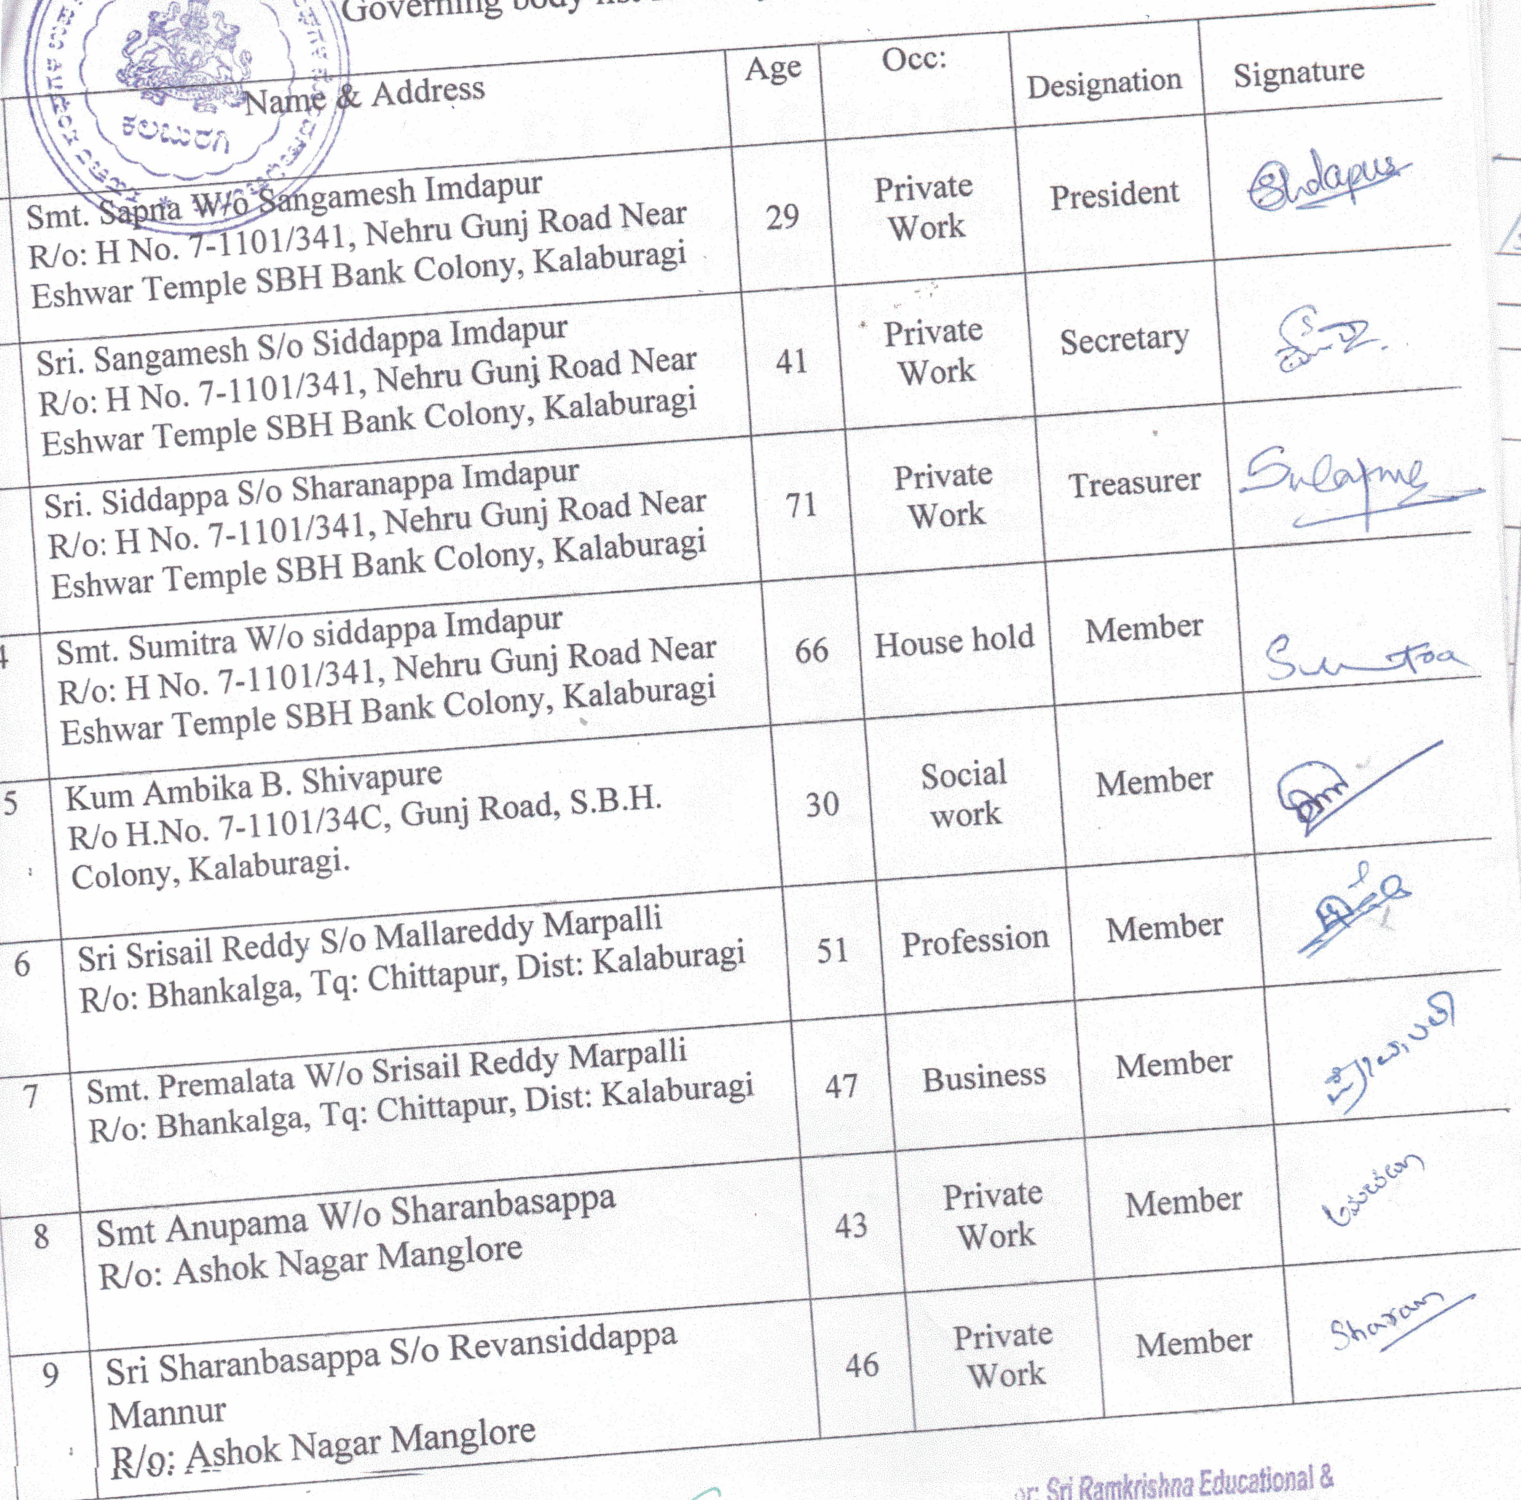 Governing body
ಕಲಬುರಗಿ
Name & Address
Age
Occ:
Designation
Signature
Smt. Sapna W/o Sangamesh Imdapur
R/o: H No. 7-1101/341, Nehru Gunj Road Near
Eshwar Temple SBH Bank Colony, Kalaburagi
29
Private
Work
President
Sri. Sangamesh S/o Siddappa Imdapur
R/o: H No. 7-1101/341, Nehru Gunj Road Near
Eshwar Temple SBH Bank Colony, Kalaburagi
41
Private
Work
Secretary
Sri. Siddappa S/o Sharanappa Imdapur
R/o: H No. 7-1101/341, Nehru Gunj Road Near
Eshwar Temple SBH Bank Colony, Kalaburagi
71
Private
Work
Treasurer
4
Smt. Sumitra W/o siddappa Imdapur
R/o: H No. 7-1101/341, Nehru Gunj Road Near
Eshwar Temple SBH Bank Colony, Kalaburagi
66
House hold
Member
5
Kum Ambika B. Shivapure
R/o H.No. 7-1101/34C, Gunj Road, S.B.H.
Colony, Kalaburagi.
30
Social
work
Member
6
Sri Srisail Reddy S/o Mallareddy Marpalli
R/o: Bhankalga, Tq: Chittapur, Dist: Kalaburagi
51
Profession
Member
7
Smt. Premalata W/o Srisail Reddy Marpalli
R/o: Bhankalga, Tq: Chittapur, Dist: Kalaburagi
47
Business
Member
8
Smt Anupama W/o Sharanbasappa
R/o: Ashok Nagar Manglore
43
Private
Work
Member
9
Sri Sharanbasappa S/o Revansiddappa
Mannur
R/o: Ashok Nagar Manglore
46
Private
Work
Member
Sharan
or: Sri Ramkrishna Educational &